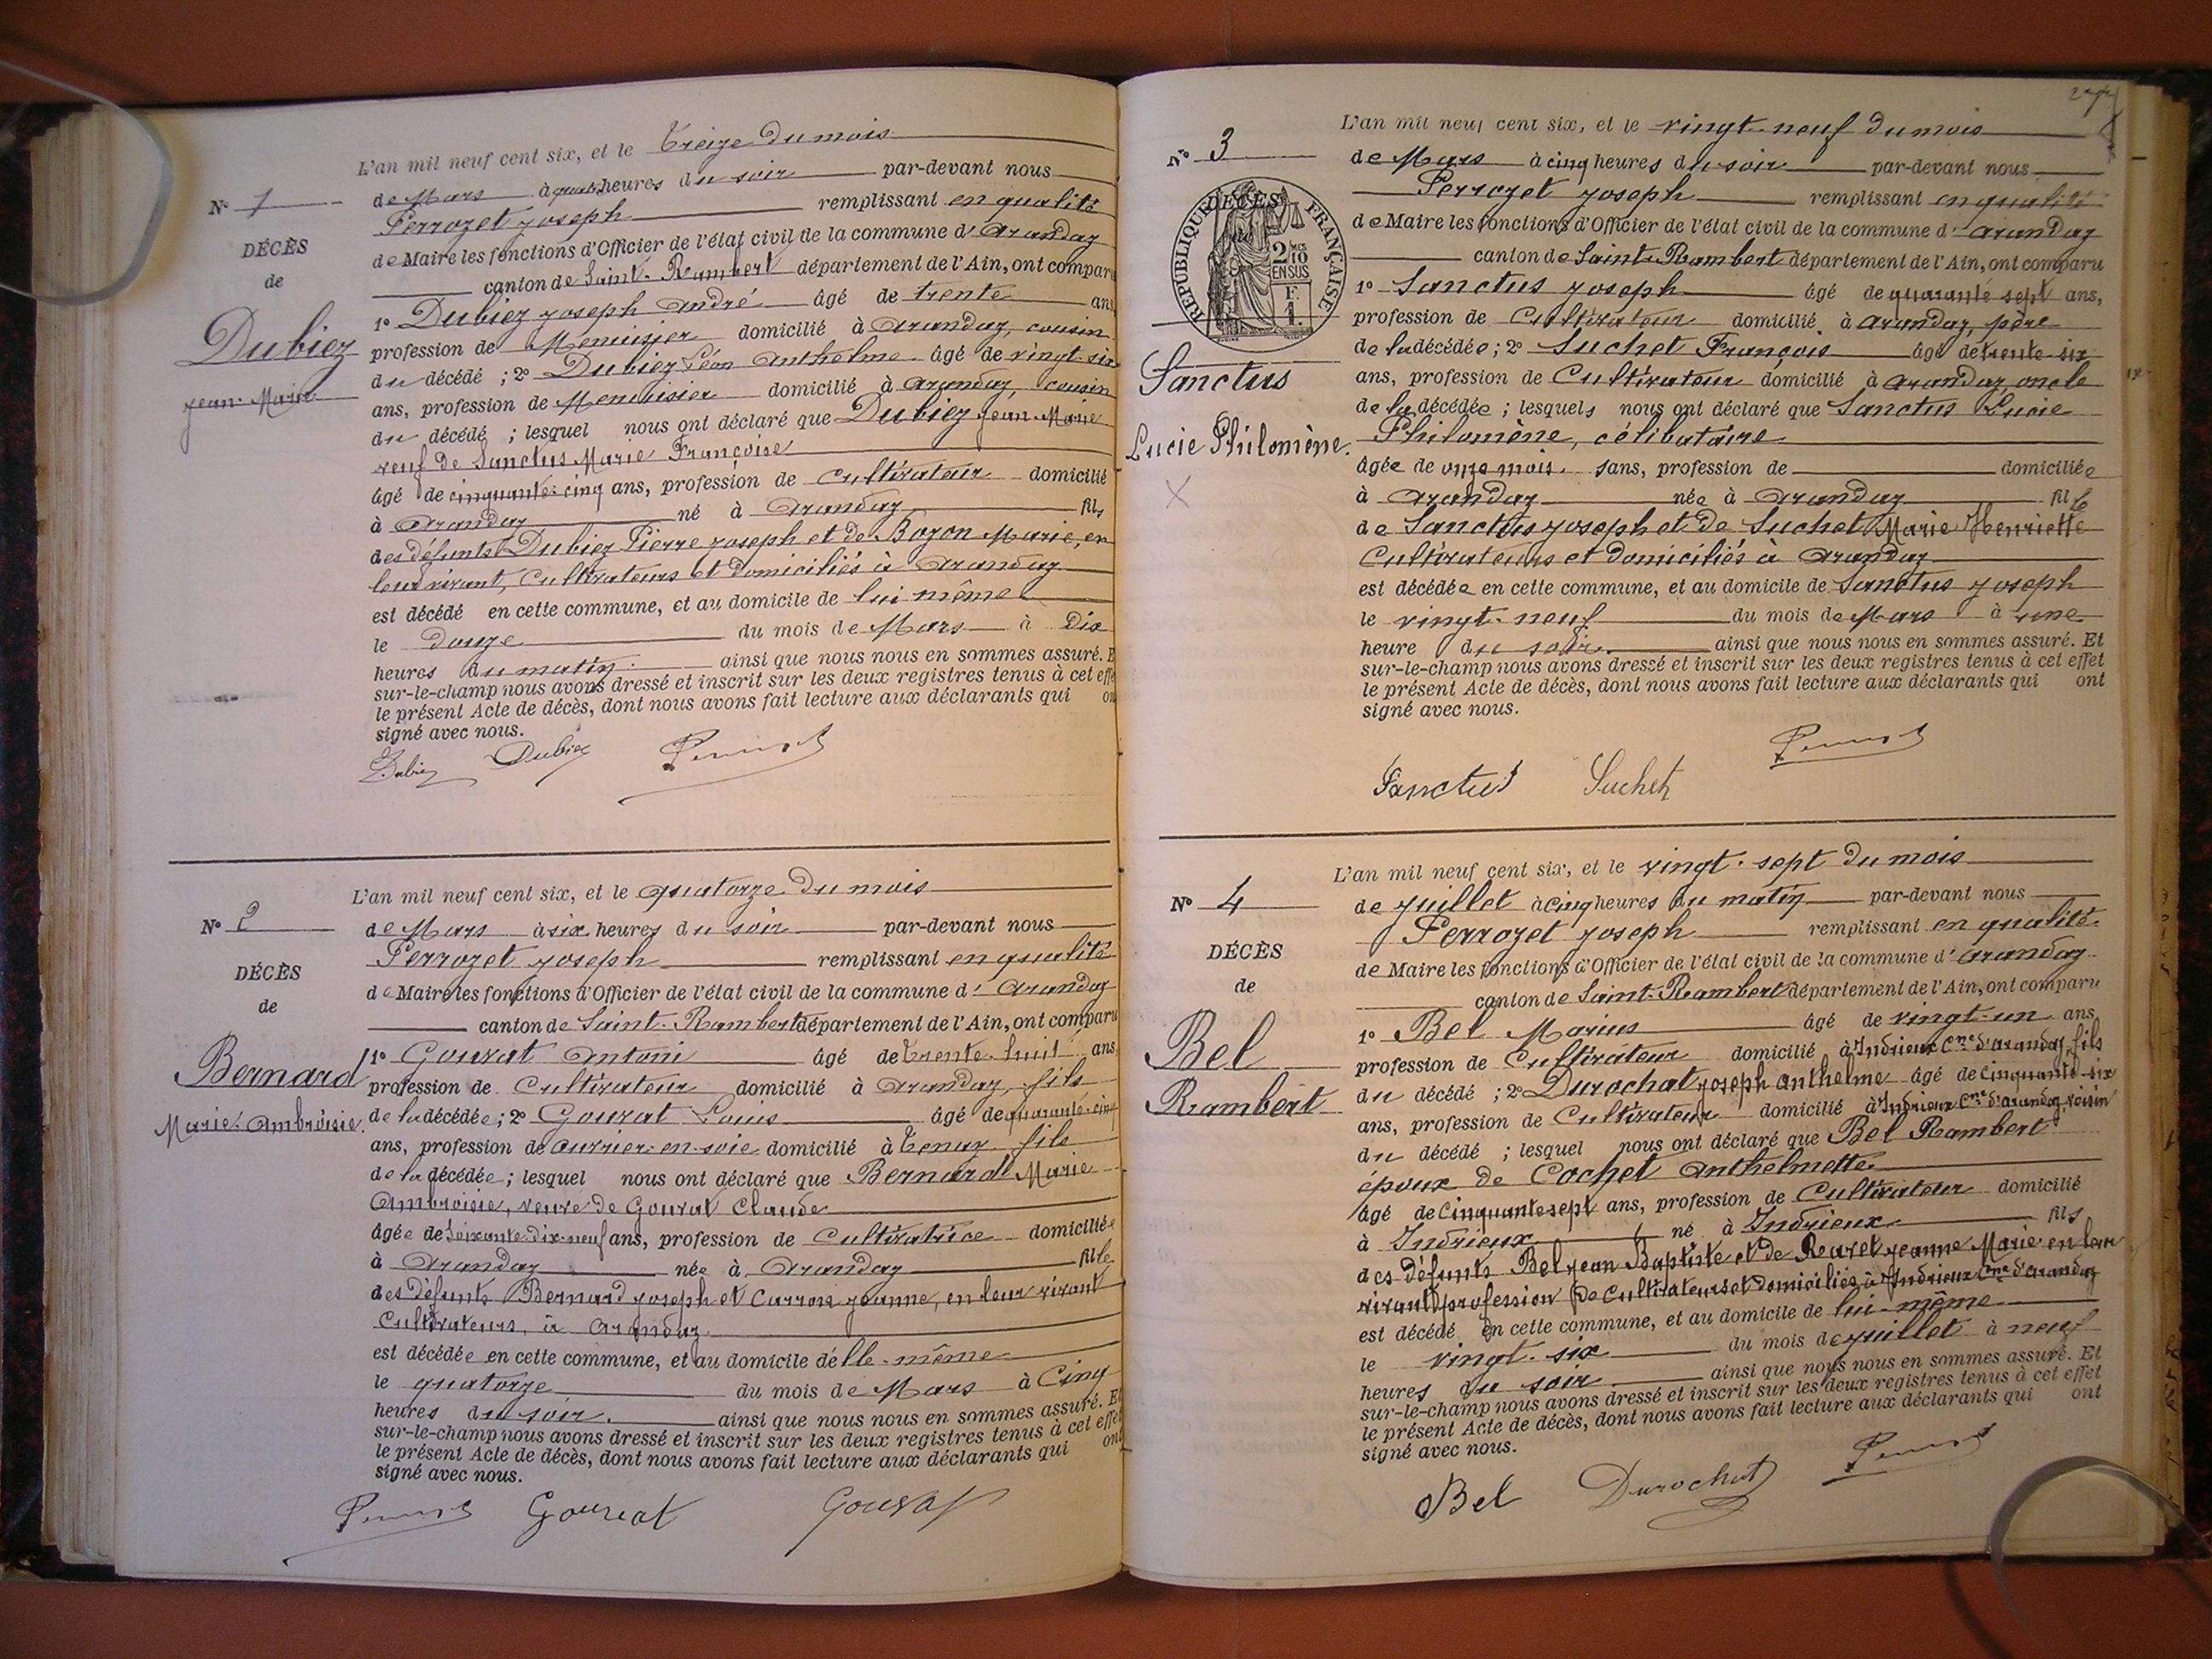 L'an mil neuf cent six, et le Treize du mois
N° 1
de Mars à quatre heures du soir par-devant nous
Perrozet Joseph remplissant en qualité
DÉCÈS
de Maire les fonctions d'Officier de l'état civil de la commune d'Arandaz
de
canton de Saint-Rambert département de l'Ain, ont comparu
1° Dubiez Joseph André âgé de trente ans
Dubiez
profession de Menuisier domicilié à Arandaz, cousin
du décédé ; 2° Dubiez Léon Anthelme âgé de vingt-six
Jean-Marie
ans, profession de Menuisier domicilié à Arandaz, cousin
du décédé ; lesquel nous ont déclaré que Dubiez Jean-Marie
veuf de Sanctus Marie Françoise
âgé de cinquante-cinq ans, profession de Cultivateur domicilié
à Arandaz né à Arandaz fils
des défunts Dubiez Pierre Joseph et de Bozon Marie, en
leur vivant, Cultivateurs et domiciliés à Arandaz
est décédé en cette commune, et au domicile de lui même
le douze du mois de Mars à dix
heures du matin. ainsi que nous nous en sommes assuré. E
sur-le-champ nous avons dressé et inscrit sur les deux registres tenus à cet effe
le présent Acte de décès, dont nous avons fait lecture aux déclarants qui on
signé avec nous.
Dubiez Dubiez
L'an mil neuf cent six, et le quatorze du mois
N° 2
de Mars à six heures du soir par-devant nous
Perrozet Joseph remplissant en qualité
DÉCÈS
de Maire les fonctions d'Officier de l'état civil de la commune d'Arandaz
de
canton de Saint-Rambert département de l'Ain, ont comparu
Bernard
1° Gourat Antoni âgé de trente-huit ans
profession de Cultivateur domicilié à Arandaz, fils
Marie-Ambroisie.
de la décédée ; 2° Gourat Louis âgé de quarante-cinq
ans, profession de ouvrier en soie domicilié à Tenay fils
de la décédée ; lesquel nous ont déclaré que Bernard Marie
Ambroisie, veuve de Gourat Claude
âgée de soixante-dix-neuf ans, profession de Cultivatrice domiciliée
à Arandaz née à Arandaz fille
des défunts Bernard Joseph et Carron Jeanne, en leur vivant
Cultivateurs, à Arandaz.
est décédée en cette commune, et au domicile d'elle-même
le quatorze du mois de Mars à Cinq
heures du soir. ainsi que nous nous en sommes assuré. Et
sur-le-champ nous avons dressé et inscrit sur les deux registres tenus à cet effet
le présent Acte de décès, dont nous avons fait lecture aux déclarants qui ont
signé avec nous.
Gourat Gourat
L'an mil neuf cent six, et le vingt-neuf du mois
N° 3
de Mars à cinq heures du soir par-devant nous
Perrozet Joseph remplissant en qualité
RÉPUBLIQUE FRANÇAISE
DÉCÈS
2/10 EN SUS
F. 1.
de Maire les fonctions d'Officier de l'état civil de la commune d'Arandaz
canton de Saint-Rambert département de l'Ain, ont comparu
1° Sanctus Joseph âgé de quarante sept ans,
profession de Cultivateur domicilié à Arandaz, père
de la décédée ; 2° Suchet François âgé de trente-six
Sanctus
ans, profession de Cultivateur domicilié à Arandaz, oncle
de la décédée ; lesquels nous ont déclaré que Sanctus Lucie
Lucie Philomène.
Philomène, célibataire
âgée de onze mois. sans, profession de domiciliée
à Arandaz née à Arandaz fille
de Sanctus Joseph et de Suchet Marie Henriette
Cultivateurs et domiciliés à Arandaz
est décédée en cette commune, et au domicile de Sanctus Joseph
le vingt-neuf du mois de Mars à une
heure du soir. ainsi que nous nous en sommes assuré. Et
sur-le-champ nous avons dressé et inscrit sur les deux registres tenus à cet effet
le présent Acte de décès, dont nous avons fait lecture aux déclarants qui ont
signé avec nous.
Sanctus Suchet
L'an mil neuf cent six, et le vingt-sept du mois
N° 4
de Juillet à Cinq heures du matin par-devant nous
Perrozet Joseph remplissant en qualité
DÉCÈS
de Maire les fonctions d'Officier de l'état civil de la commune d'Arandaz
de
canton de Saint-Rambert département de l'Ain, ont comparu
Bel
1° Bel Marius âgé de vingt-un ans
profession de Cultivateur domicilié à Indrieux Cne d'Arandaz, fils
Rambert
du décédé ; 2° Durochat Joseph Anthelme âgé de cinquante-six
ans, profession de Cultivateur domicilié à Indrieux Cne d'Arandaz, voisin
du décédé ; lesquel nous ont déclaré que Bel Rambert
époux de Cochet Anthelmette
âgé de Cinquante sept ans, profession de Cultivateur domicilié
à Indrieux né à Indrieux fils
des défunts Bel Jean Baptiste et de Ravet Jeanne Marie en leur
vivant profession de Cultivateurs et domiciliés à Indrieux Cne d'Arandaz
est décédé en cette commune, et au domicile de lui-même
le vingt-six du mois de Juillet à neuf
heures du soir ainsi que nous nous en sommes assuré. Et
sur-le-champ nous avons dressé et inscrit sur les deux registres tenus à cet effet
le présent Acte de décès, dont nous avons fait lecture aux déclarants qui ont
signé avec nous.
Bel Durochat